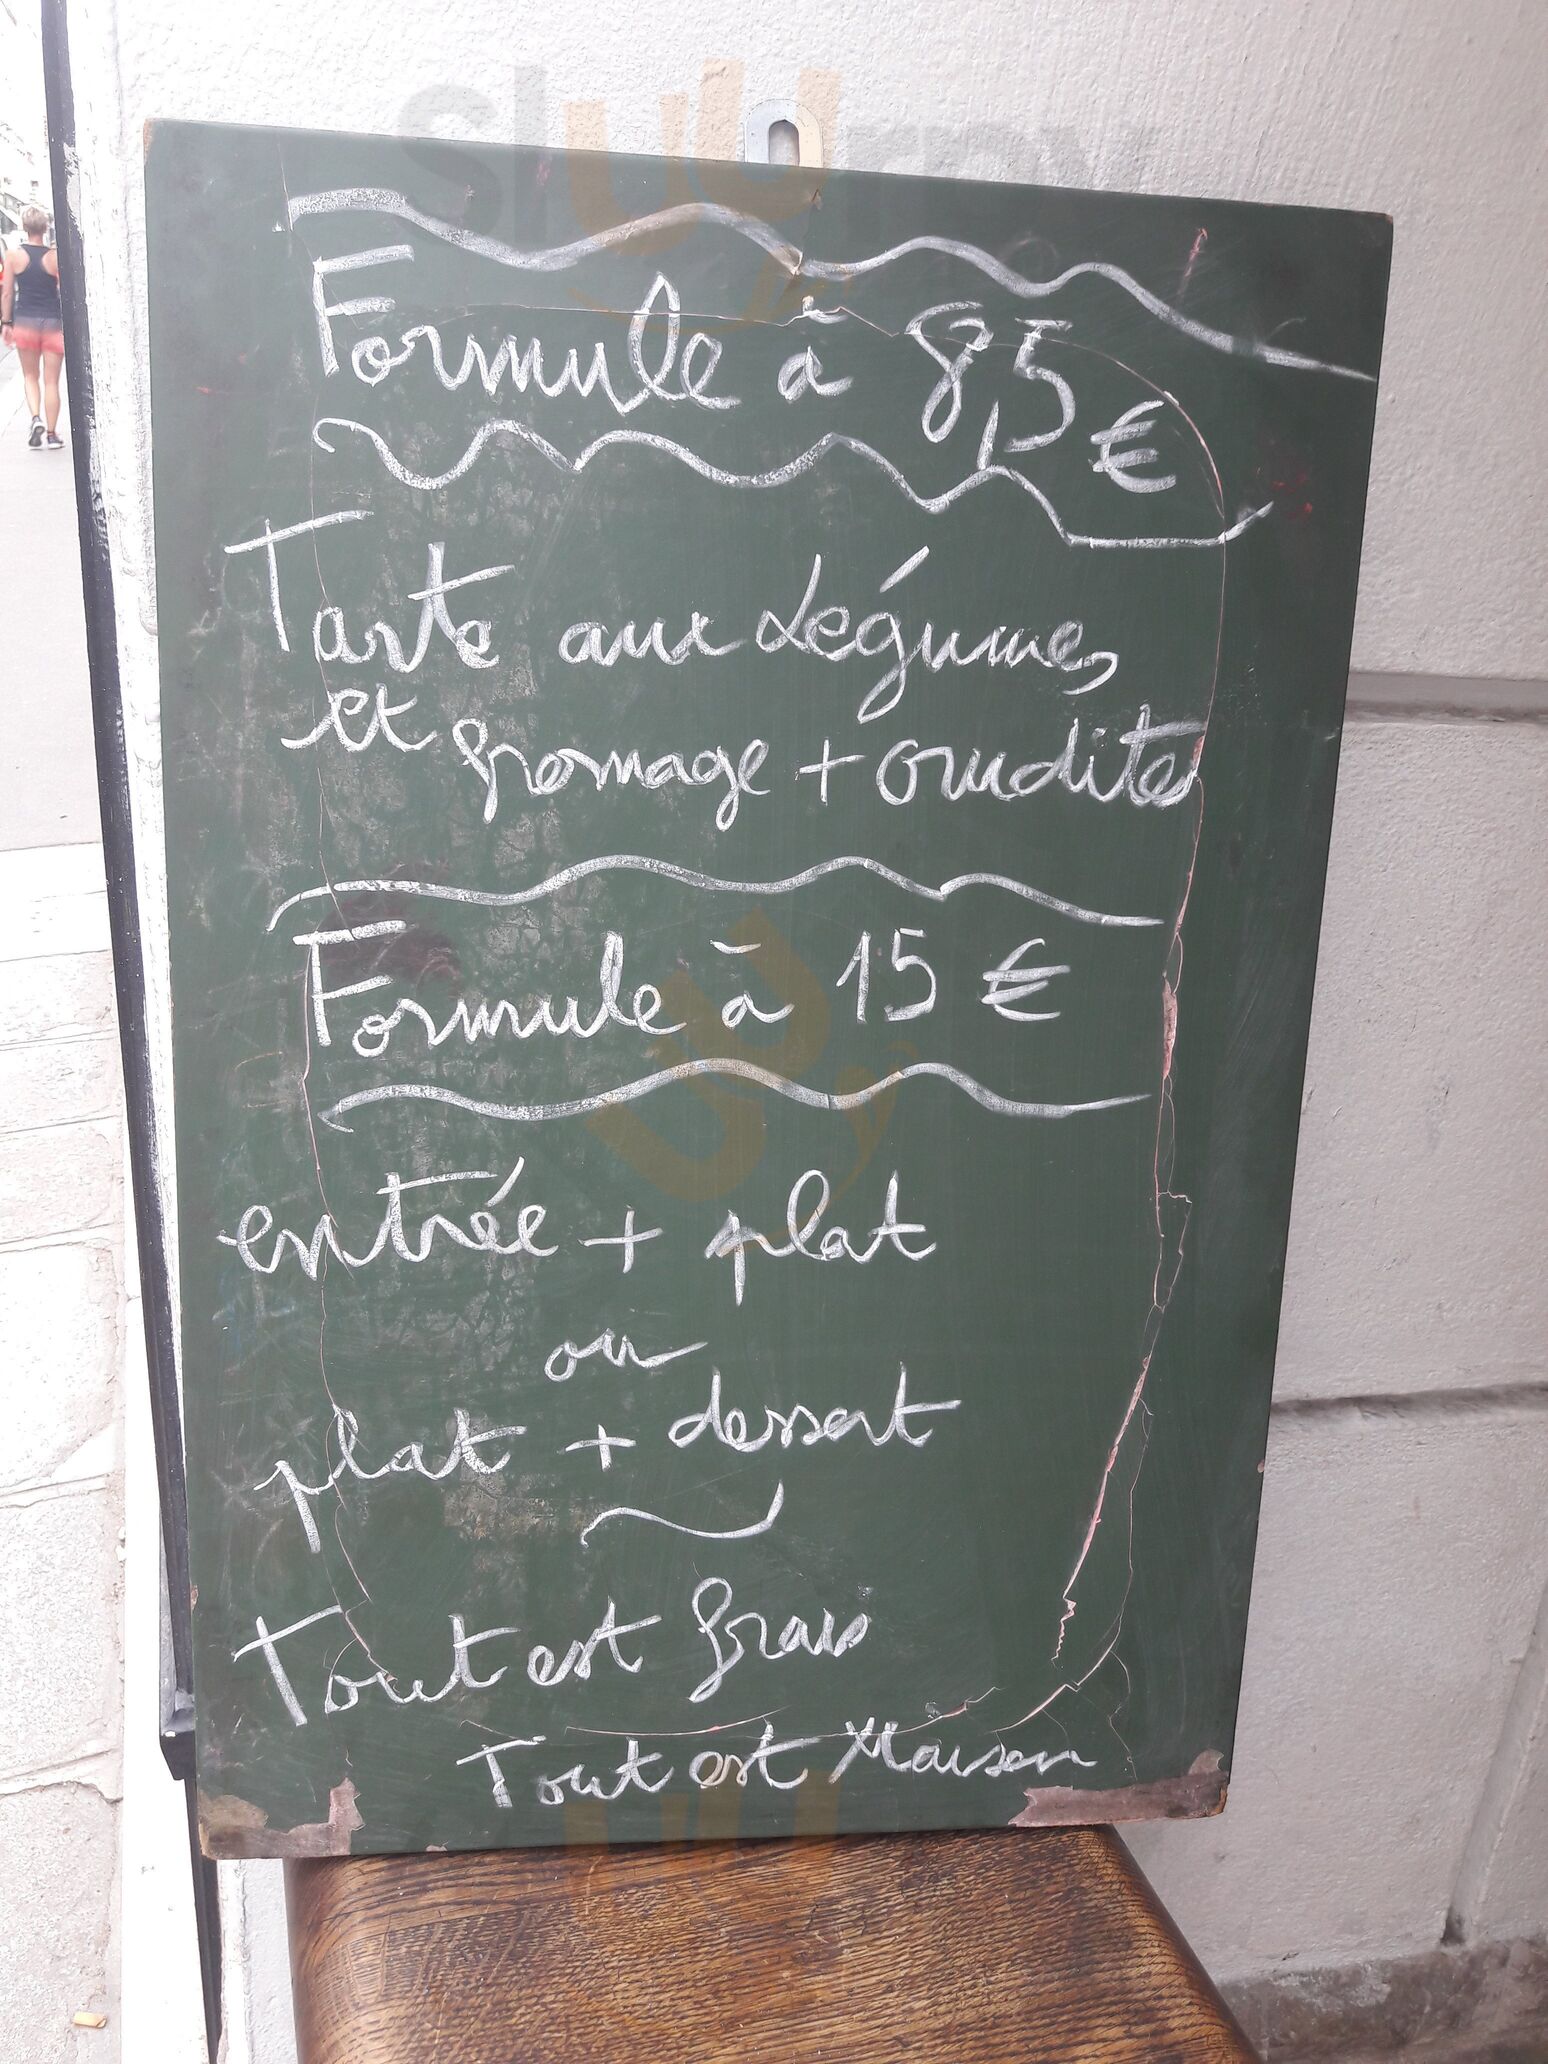 slurpy
Formule à 8,5 €
Tarte aux Légumes
et fromage + crudités
Formule à 15 €
entrée + plat
ou
plat + dessert
Tout est frais
Tout est Maison